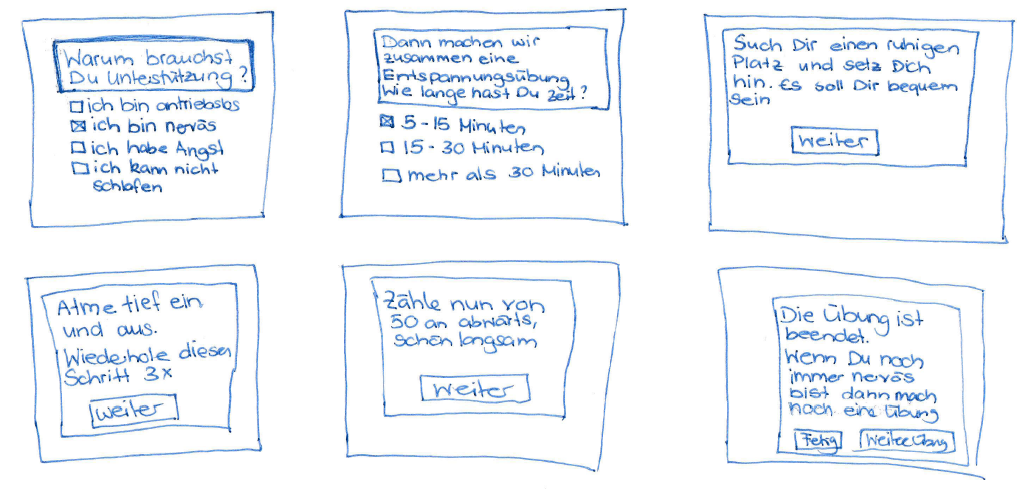 Warum brauchst
Du Unterstützung?
ich bin antriebslos
ich bin nervös
ich habe Angst
ich kann nicht
schlafen
Dann machen wir
zusammen eine
Entspannungsübung
Wie lange hast Du Zeit?
5-15 Minuten
15-30 Minuten
mehr als 30 Minuten
Such Dir einen ruhigen
Platz und setz Dich
hin. Es soll Dir bequem
sein
Weiter
Atme tief ein
und aus.
Wiederhole diesen
Schritt 3x
Weiter
Zähle nun von
50 an abwärts,
schön langsam
Weiter
Die Übung ist
beendet.
Wenn Du noch
immer nervös
bist dann mach
noch eine Übung
Fertig
Weitere Übung